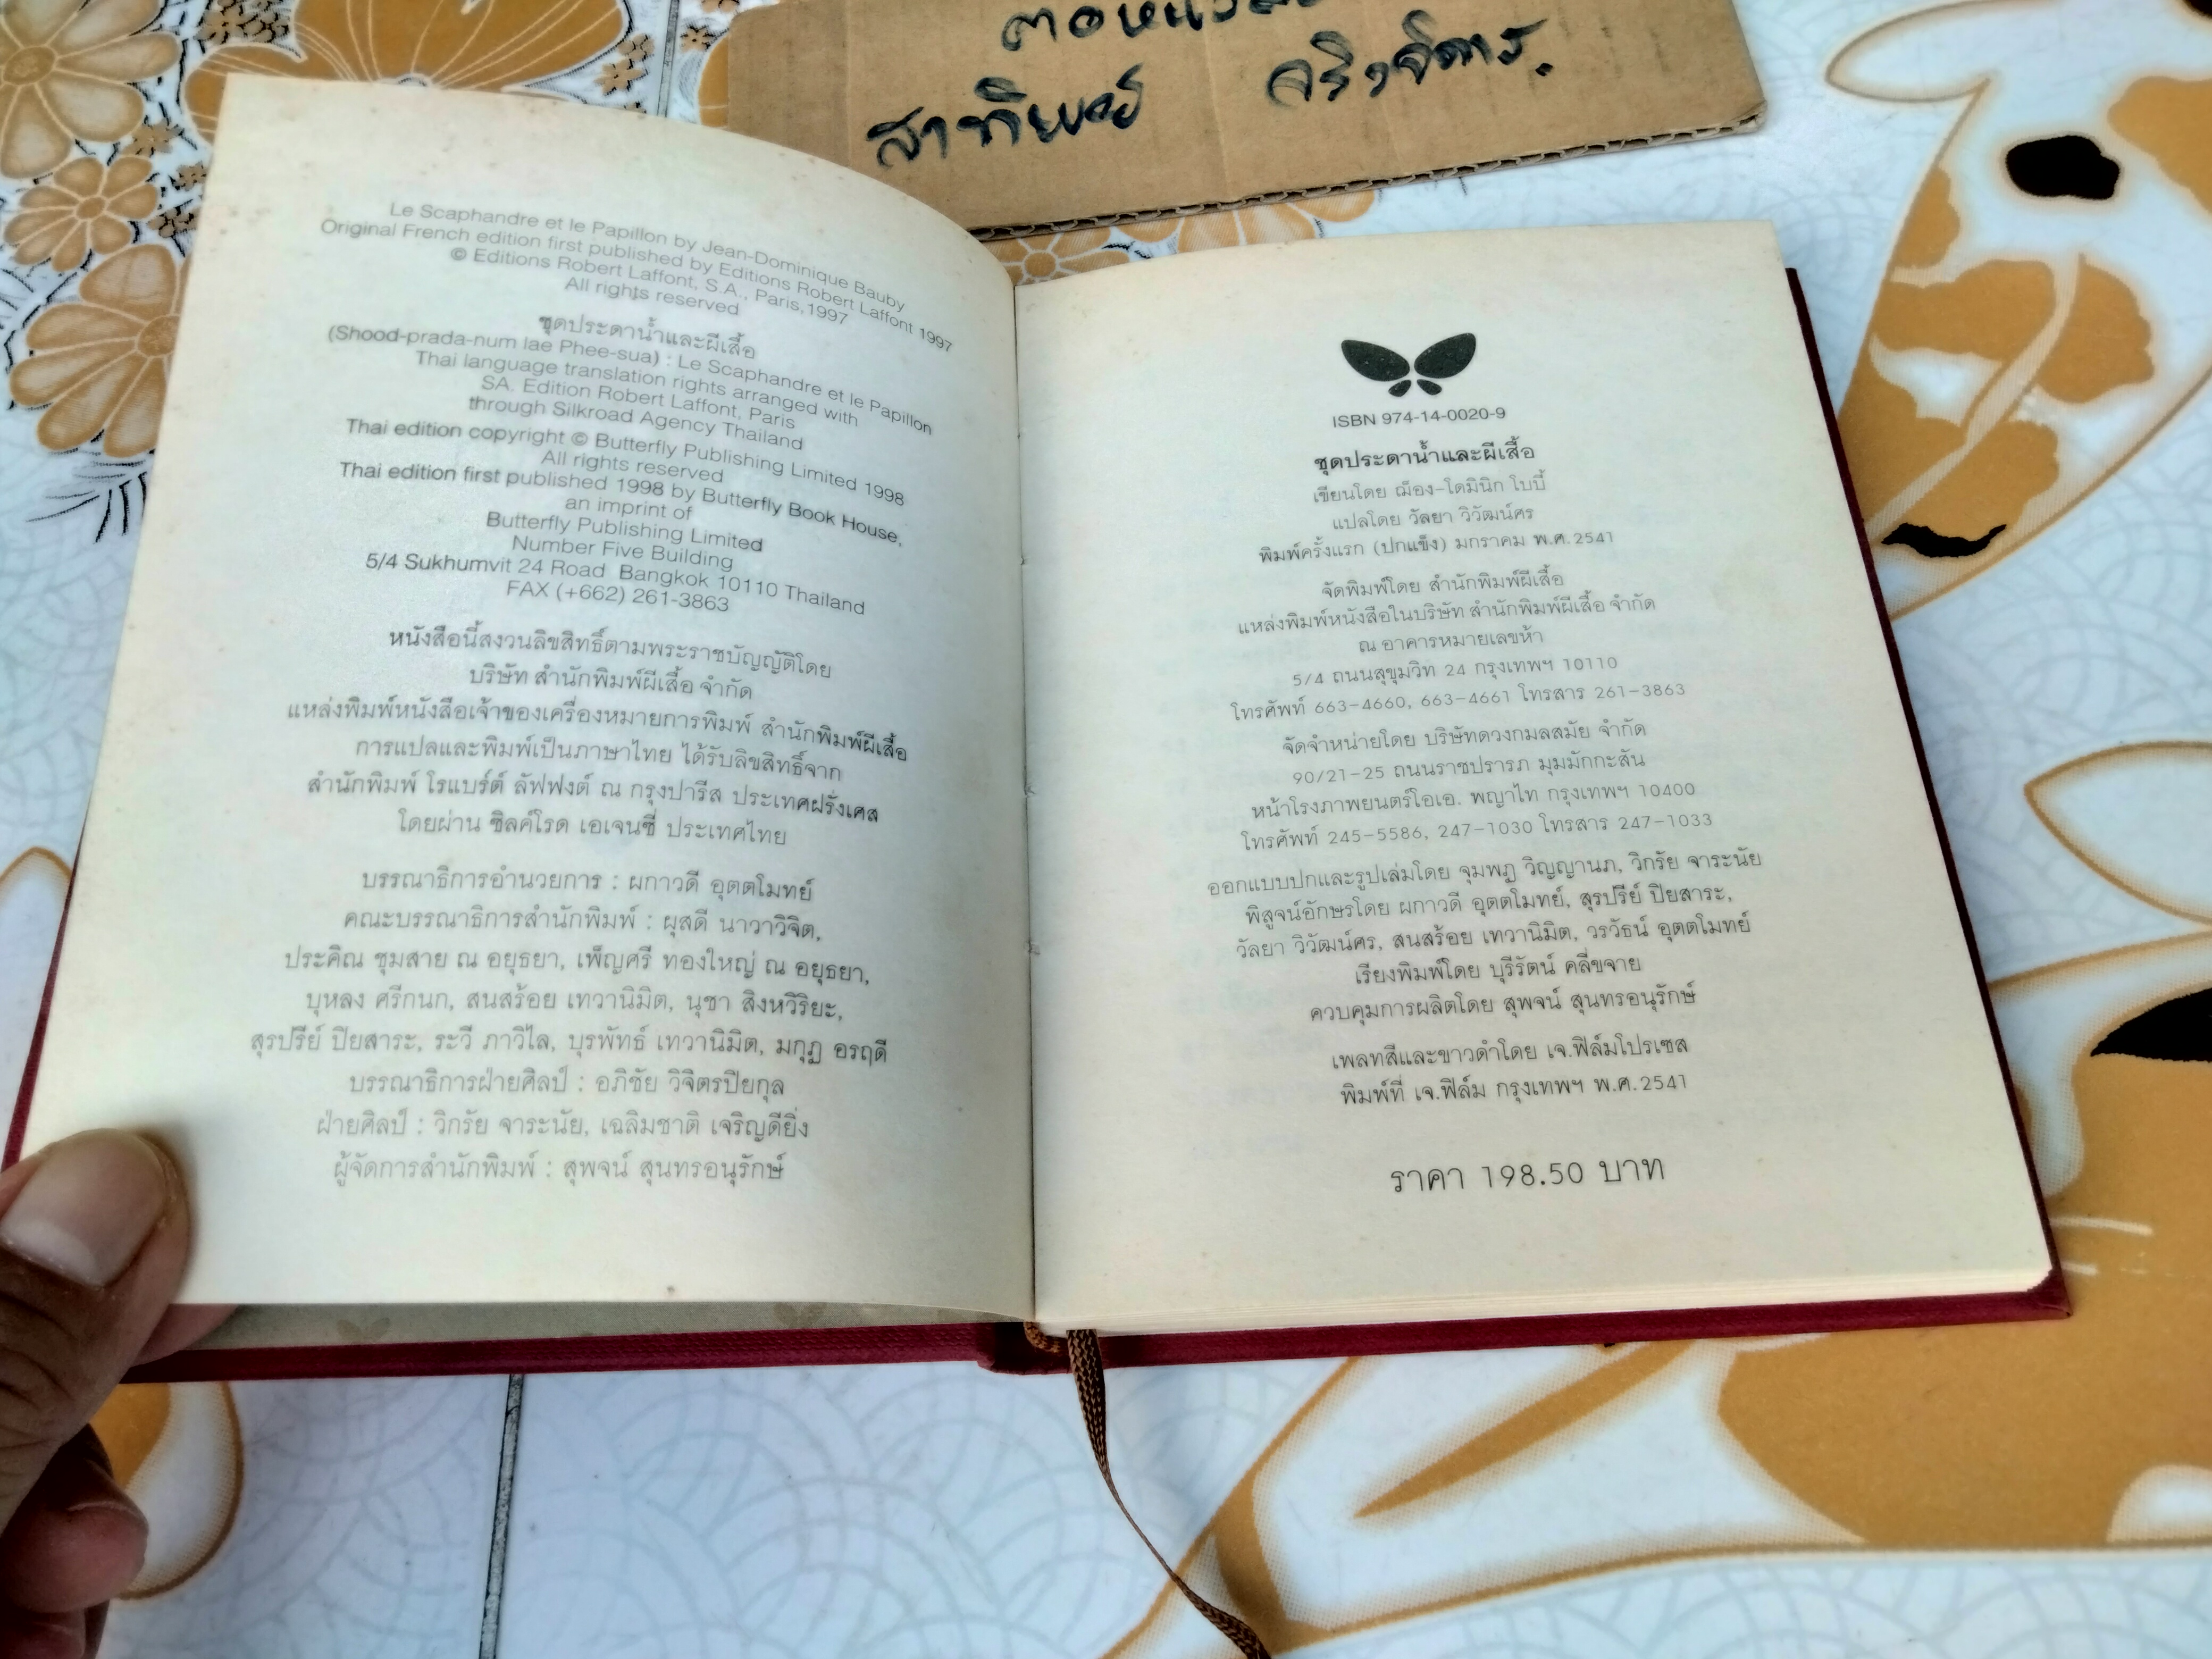 สาทิพย์
Le Scaphandre et le Papillon by Jean-Dominique Bauby
Original French edition first published by Editions Robert Laffont 1997
© Editions Robert Laffont, S.A., Paris,1997
All rights reserved
ชุดประดาน้ำและผีเสื้อ
(Shood-prada-num lae Phee-sua) : Le Scaphandre et le Papillon
Thai language translation rights arranged with
SA. Edition Robert Laffont, Paris
through Silkroad Agency Thailand
Thai edition copyright © Butterfly Publishing Limited 1998
All rights reserved
Thai edition first published 1998 by Butterfly Book House,
an imprint of
Butterfly Publishing Limited
Number Five Building
5/4 Sukhumvit 24 Road Bangkok 10110 Thailand
FAX (+662) 261-3863
หนังสือนี้สงวนลิขสิทธิ์ตามพระราชบัญญัติโดย
บริษัท สำนักพิมพ์ผีเสื้อ จำกัด
แหล่งพิมพ์หนังสือเจ้าของเครื่องหมายการพิมพ์ สำนักพิมพ์ผีเสื้อ
การแปลและพิมพ์เป็นภาษาไทย ได้รับลิขสิทธิ์จาก
สำนักพิมพ์ โรแบร์ต์ ลัฟฟงต์ ณ กรุงปารีส ประเทศฝรั่งเศส
โดยผ่าน ซิลค์โรด เอเจนซี่ ประเทศไทย
บรรณาธิการอำนวยการ : ผกาวดี อุตตโมทย์
คณะบรรณาธิการสำนักพิมพ์ : ผุสดี นาวาวิจิต,
ประคิณ ชุมสาย ณ อยุธยา, เพ็ญศรี ทองใหญ่ ณ อยุธยา,
บุหลง ศรีกนก, สนสร้อย เทวานิมิต, นุชา สิงหวิริยะ,
สุรปรีย์ ปิยสาระ, ระวี ภาวิไล, บุรพัทธ์ เทวานิมิต, มกุฏ อรฤดี
บรรณาธิการฝ่ายศิลป์ : อภิชัย วิจิตรปิยกุล
ฝ่ายศิลป์ : วิกรัย จาระนัย, เฉลิมชาติ เจริญดียิ่ง
ผู้จัดการสำนักพิมพ์ : สุพจน์ สุนทรอนุรักษ์
ISBN 974-14-0020-9
ชุดประดาน้ำและผีเสื้อ
เขียนโดย ฌ็อง-โดมินิก โบบี้
แปลโดย วัลยา วิวัฒน์ศร
พิมพ์ครั้งแรก (ปกแข็ง) มกราคม พ.ศ.2541
จัดพิมพ์โดย สำนักพิมพ์ผีเสื้อ
แหล่งพิมพ์หนังสือในบริษัท สำนักพิมพ์ผีเสื้อ จำกัด
ณ อาคารหมายเลขห้า
5/4 ถนนสุขุมวิท 24 กรุงเทพฯ 10110
โทรศัพท์ 663-4660, 663-4661 โทรสาร 261-3863
จัดจำหน่ายโดย บริษัทดวงกมลสมัย จำกัด
90/21-25 ถนนราชปรารภ มุมมักกะสัน
หน้าโรงภาพยนตร์โอเอ. พญาไท กรุงเทพฯ 10400
โทรศัพท์ 245-5586, 247-1030 โทรสาร 247-1033
ออกแบบปกและรูปเล่มโดย จุมพฏ วิญญานภ, วิกรัย จาระนัย
พิสูจน์อักษรโดย ผกาวดี อุตตโมทย์, สุรปรีย์ ปิยสาระ,
วัลยา วิวัฒน์ศร, สนสร้อย เทวานิมิต, วรวัธน์ อุตตโมทย์
เรียงพิมพ์โดย บุรีรัตน์ คลี่ขจาย
ควบคุมการผลิตโดย สุพจน์ สุนทรอนุรักษ์
เพลทสีและขาวดำโดย เจ.ฟิล์มโปรเซส
พิมพ์ที่ เจ.ฟิล์ม กรุงเทพฯ พ.ศ.2541
ราคา 198.50 บาท